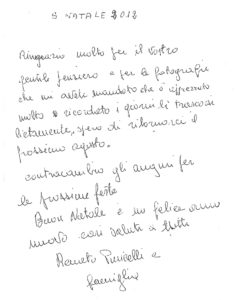 S NATALE 2012
Ringrazio molto per il vostro
gentile pensiero e per le fotografie
che mi avete mandato che ò apprezzato
molto e ricordato i giorni li trascorsi
lietamente, spero di ritornarci il
prossimo agosto.
contracambio gli auguri per
le prossime feste
Buon Natale e un felice anno
nuovo cari saluti a tutti
Renato e
famiglia